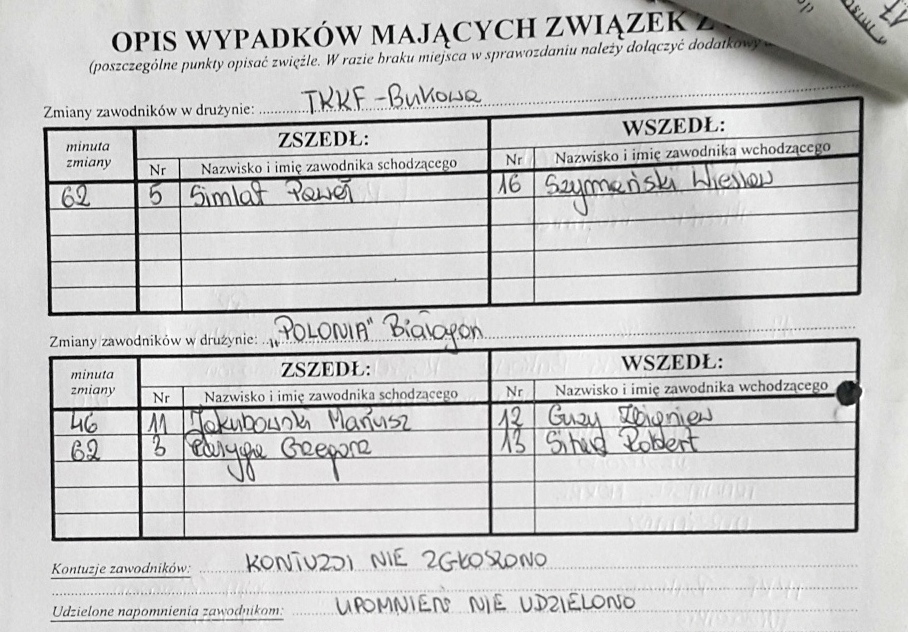 OPIS WYPADKÓW MAJĄCYCH ZWIĄZEK Z
(poszczególne punkty opisać zwięźle. W razie braku miejsca w sprawozdaniu należy dołączyć dodatkowy
Zmiany zawodników w drużynie: TKKF - Bukowa
minuta zmiany ZSZEDŁ: WSZEDŁ:
Nr Nazwisko i imię zawodnika schodzącego Nr Nazwisko i imię zawodnika wchodzącego
62 5 Simlat Paweł 16 Szymański Wiesław
Zmiany zawodników w drużynie: „POLONIA" Białogon
minuta zmiany ZSZEDŁ: WSZEDŁ:
Nr Nazwisko i imię zawodnika schodzącego Nr Nazwisko i imię zawodnika wchodzącego
46 11 Jakubowski Mariusz 12 Guzy Zbigniew
62 3 Grzegorz 13 Robert
Kontuzje zawodników: KONTUZJI NIE ZGŁOSZONO
Udzielone napomnienia zawodnikom: UPOMNIEŃ NIE UDZIELONO